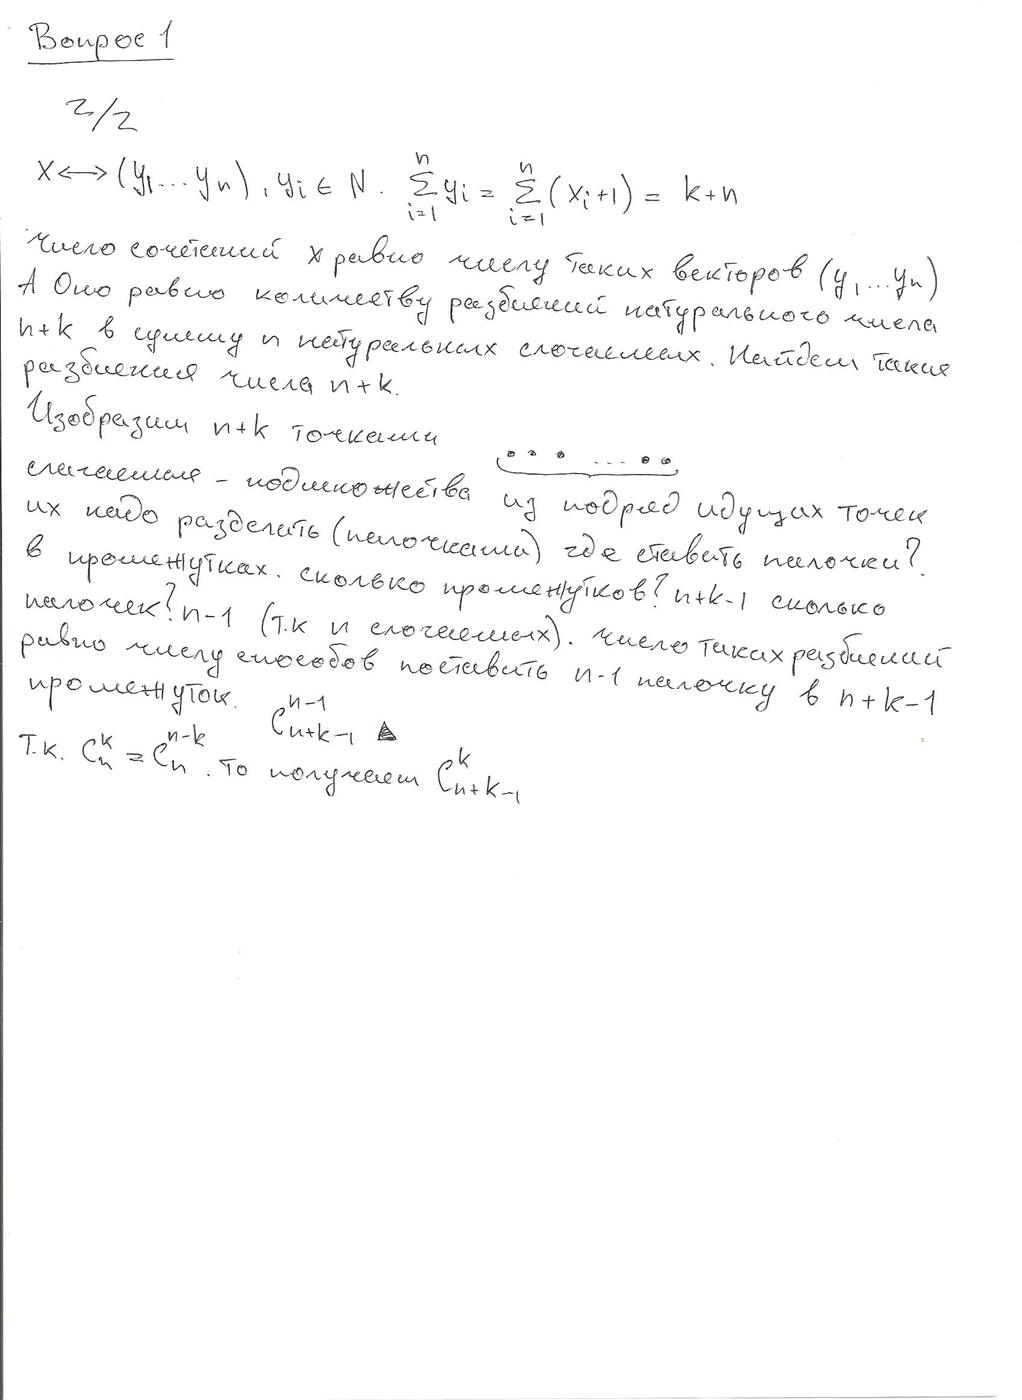 Вопрос 1
2/2
X ⟷ (y₁...yₙ), yᵢ ∈ N. ∑ᵢ₌₁ⁿ yᵢ = ∑ᵢ₌₁ⁿ (xᵢ+1) = k+n
Число сочетаний X равно числу таких векторов (y₁...yₙ)
А Оно равно количеству разбиений натурального числа
n+k в сумму n натуральных слогаемых. Найдем такие
разбиения числа n+k.
Изобразим n+k точками
слагаемые - подмножества из подряд идущих точек
их надо разделить (палочками) где ставить палочки?
в промежутках. сколько промежутков? n+k-1 сколько
палочек? n-1 (т.к n слогаемых). число таких разбиений
равно числу способов поставить n-1 палочку в n+k-1
промежуток. C_{n+k-1}^{n-1} ▲
Т.к. C_n^k = C_n^{n-k}. то получаем C_{n+k-1}^k